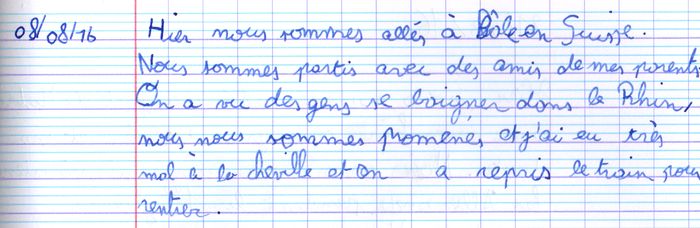 08/08/16 Hier nous sommes allés à Bâle en Suisse.
Nous sommes partis avec des amis de mes parents
On a vu des gens se baigner dans le Rhin,
nous nous sommes promenés et j'ai eu très
mal à la cheville et on a repris le train pour
rentrer.